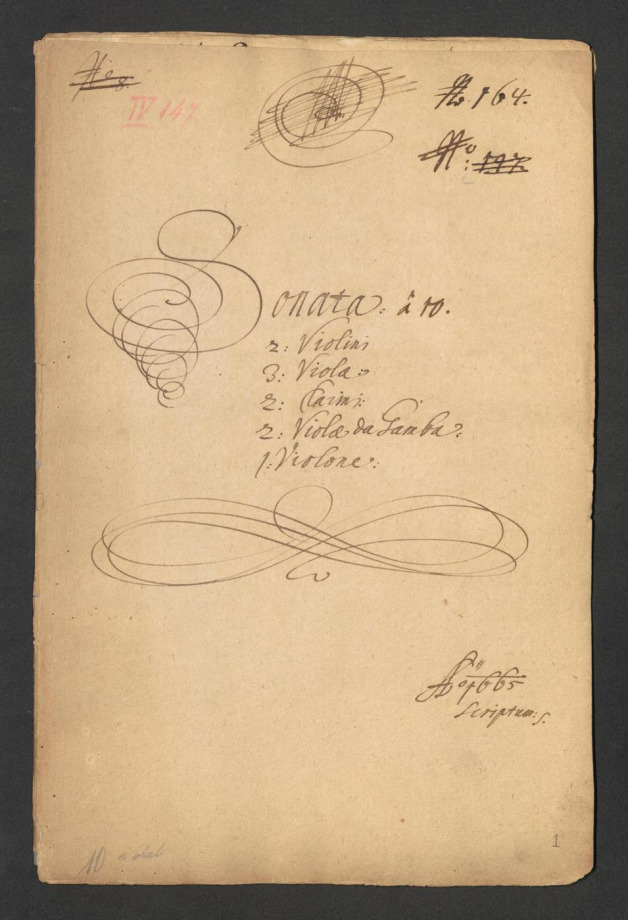 No 8
IV 147
No 164.
No: 197.
Sonata: â 10.
2: Violini
3: Violæ:
2: Clarini:
2: Violæ da Gamba:
1: Violone:
Ao 1665
Scriptum:
1
10 a obal